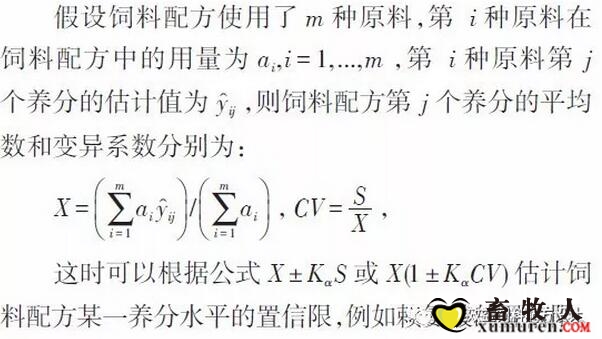 假设饲料配方使用了 m 种原料,第 i 种原料在
饲料配方中的用量为 aᵢ,i = 1,...,m ,第 i 种原料第 j
个养分的估计值为 ŷᵢⱼ ,则饲料配方第 j 个养分的平均
数和变异系数分别为:
X = (∑ᵢ₌₁ᵐ aᵢŷᵢⱼ)/(∑ᵢ₌₁ᵐ aᵢ) , CV = S/X ,
这时可以根据公式 X ± KαS 或 X(1 ± KαCV) 估计饲
料配方某一养分水平的置信限,例如
畜牧人
xumuren.com